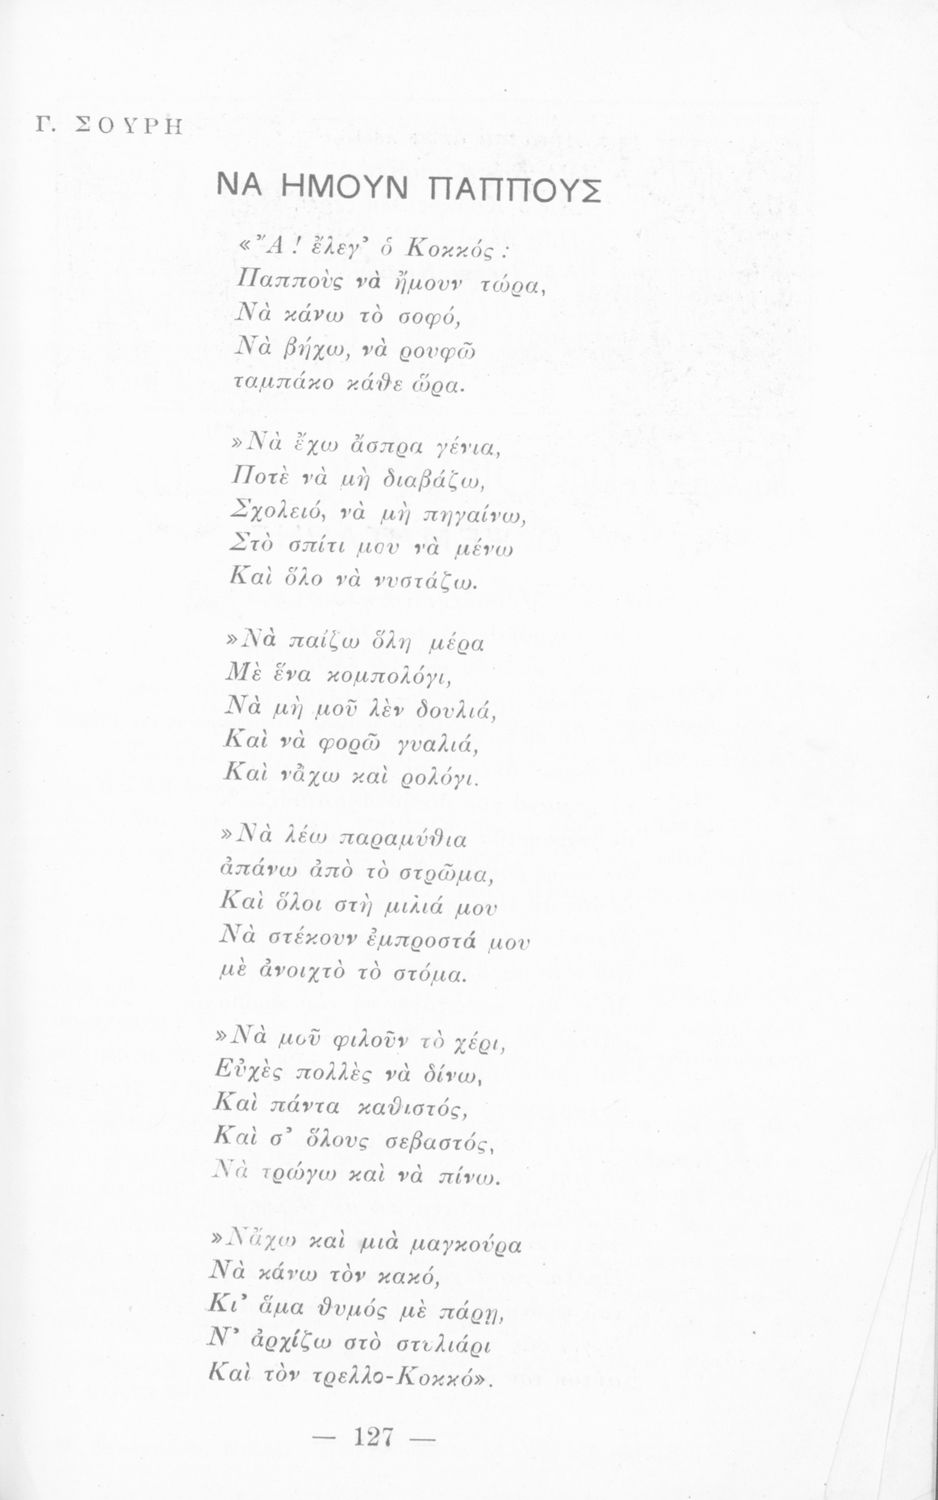 Γ. ΣΟΥΡΗ
ΝΑ ΗΜΟΥΝ ΠΑΠΠΟΥΣ
«Ἄ! ἔλεγ᾽ ὁ Κοκκός:
Παπποὺς νὰ ἤμουν τώρα,
Νὰ κάνω τὸ σοφό,
Νὰ βήχω, νὰ ρουφῶ
ταμπάκο κάθε ὥρα.
»Νὰ ἔχω ἄσπρα γένια,
Ποτὲ νὰ μὴ διαβάζω,
Σχολειό, νὰ μὴ πηγαίνω,
Στὸ σπίτι μου νὰ μένω
Καὶ ὅλο νὰ νυστάζω.
»Νὰ παίζω ὅλη μέρα
Μὲ ἕνα κομπολόγι,
Νὰ μὴ μοῦ λὲν δουλιά,
Καὶ νὰ φορῶ γυαλιά,
Καὶ νἄχω καὶ ρολόγι.
»Νὰ λέω παραμύθια
ἀπάνω ἀπὸ τὸ στρῶμα,
Καὶ ὅλοι στὴ μιλιά μου
Νὰ στέκουν ἐμπροστά μου
μὲ ἀνοιχτὸ τὸ στόμα.
»Νὰ μοῦ φιλοῦν τὸ χέρι,
Εὐχὲς πολλὲς νὰ δίνω,
Καὶ πάντα καθιστός,
Καὶ σ᾽ ὅλους σεβαστός,
Νὰ τρώγω καὶ νὰ πίνω.
»Νἄχω καὶ μιὰ μαγκούρα
Νὰ κάνω τὸν κακό,
Κι᾽ ἅμα θυμός μὲ πάρῃ,
Ν᾽ ἀρχίζω στὸ στυλιάρι
Καὶ τὸν τρελλο-Κοκκό».
— 127 —